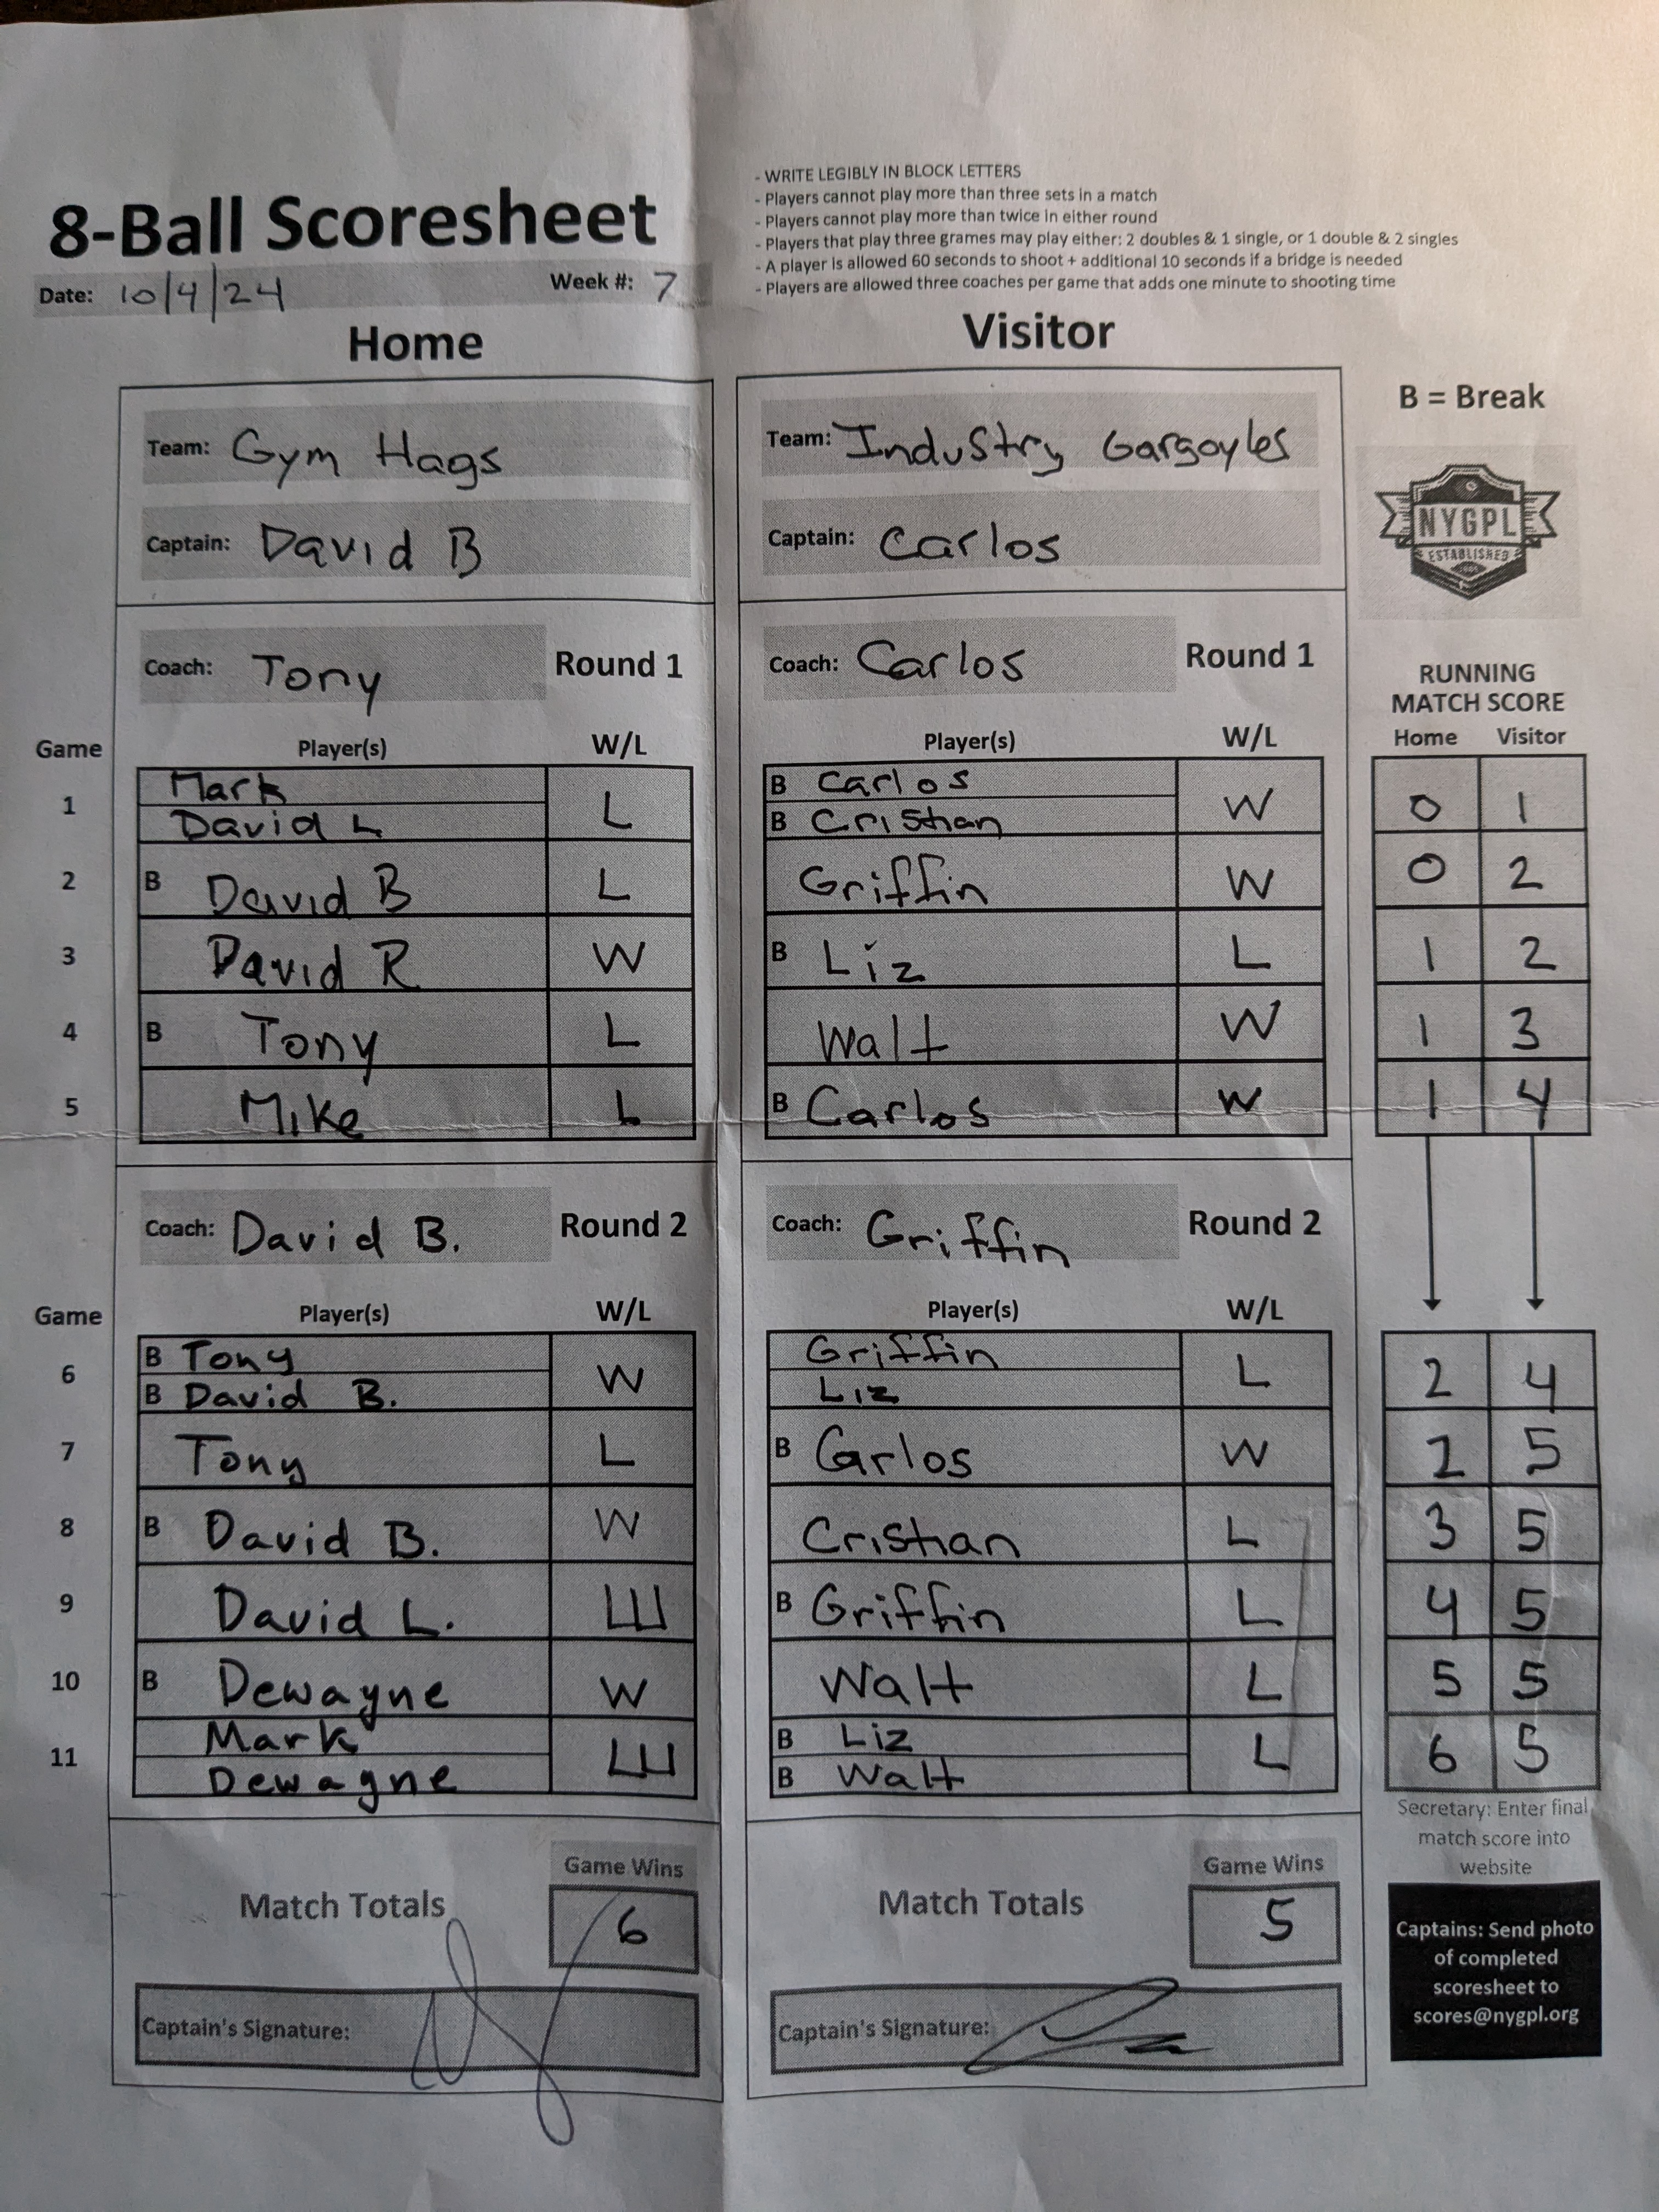 - WRITE LEGIBLY IN BLOCK LETTERS
- Players cannot play more than three sets in a match
- Players cannot play more than twice in either round
- Players that play three grames may play either: 2 doubles & 1 single, or 1 double & 2 singles
- A player is allowed 60 seconds to shoot + additional 10 seconds if a bridge is needed
- Players are allowed three coaches per game that adds one minute to shooting time
8-Ball Scoresheet
Date: 10/4/24 Week #: 7
Home Visitor
B = Break
Team: Gym Hags Team: Industry Gargoyles
Captain: David B Captain: Carlos
NYGPL
ESTABLISHED
Coach: Tony Round 1 Coach: Carlos Round 1
RUNNING
MATCH SCORE
Game Player(s) W/L Player(s) W/L Home Visitor
Mark B Carlos
1 L W 0 1
David L B Cristian
2 B David B L Griffin W 0 2
3 David R W B Liz L 1 2
4 B Tony L Walt W 1 3
5 Mike L B Carlos W 1 4
Coach: David B. Round 2 Coach: Griffin Round 2
Game Player(s) W/L Player(s) W/L
B Tony Griffin
6 W L 2 4
B David B. Liz
7 Tony L B Carlos W 2 5
8 B David B. W Cristian L 3 5
9 David L. W B Griffin L 4 5
10 B Dewayne W Walt L 5 5
Mark B Liz
11 W L 6 5
Dewayne B Walt
Secretary: Enter final
match score into
website
Game Wins Game Wins
Match Totals 6 Match Totals 5
Captain's Signature: Captain's Signature:
Captains: Send photo
of completed
scoresheet to
scores@nygpl.org